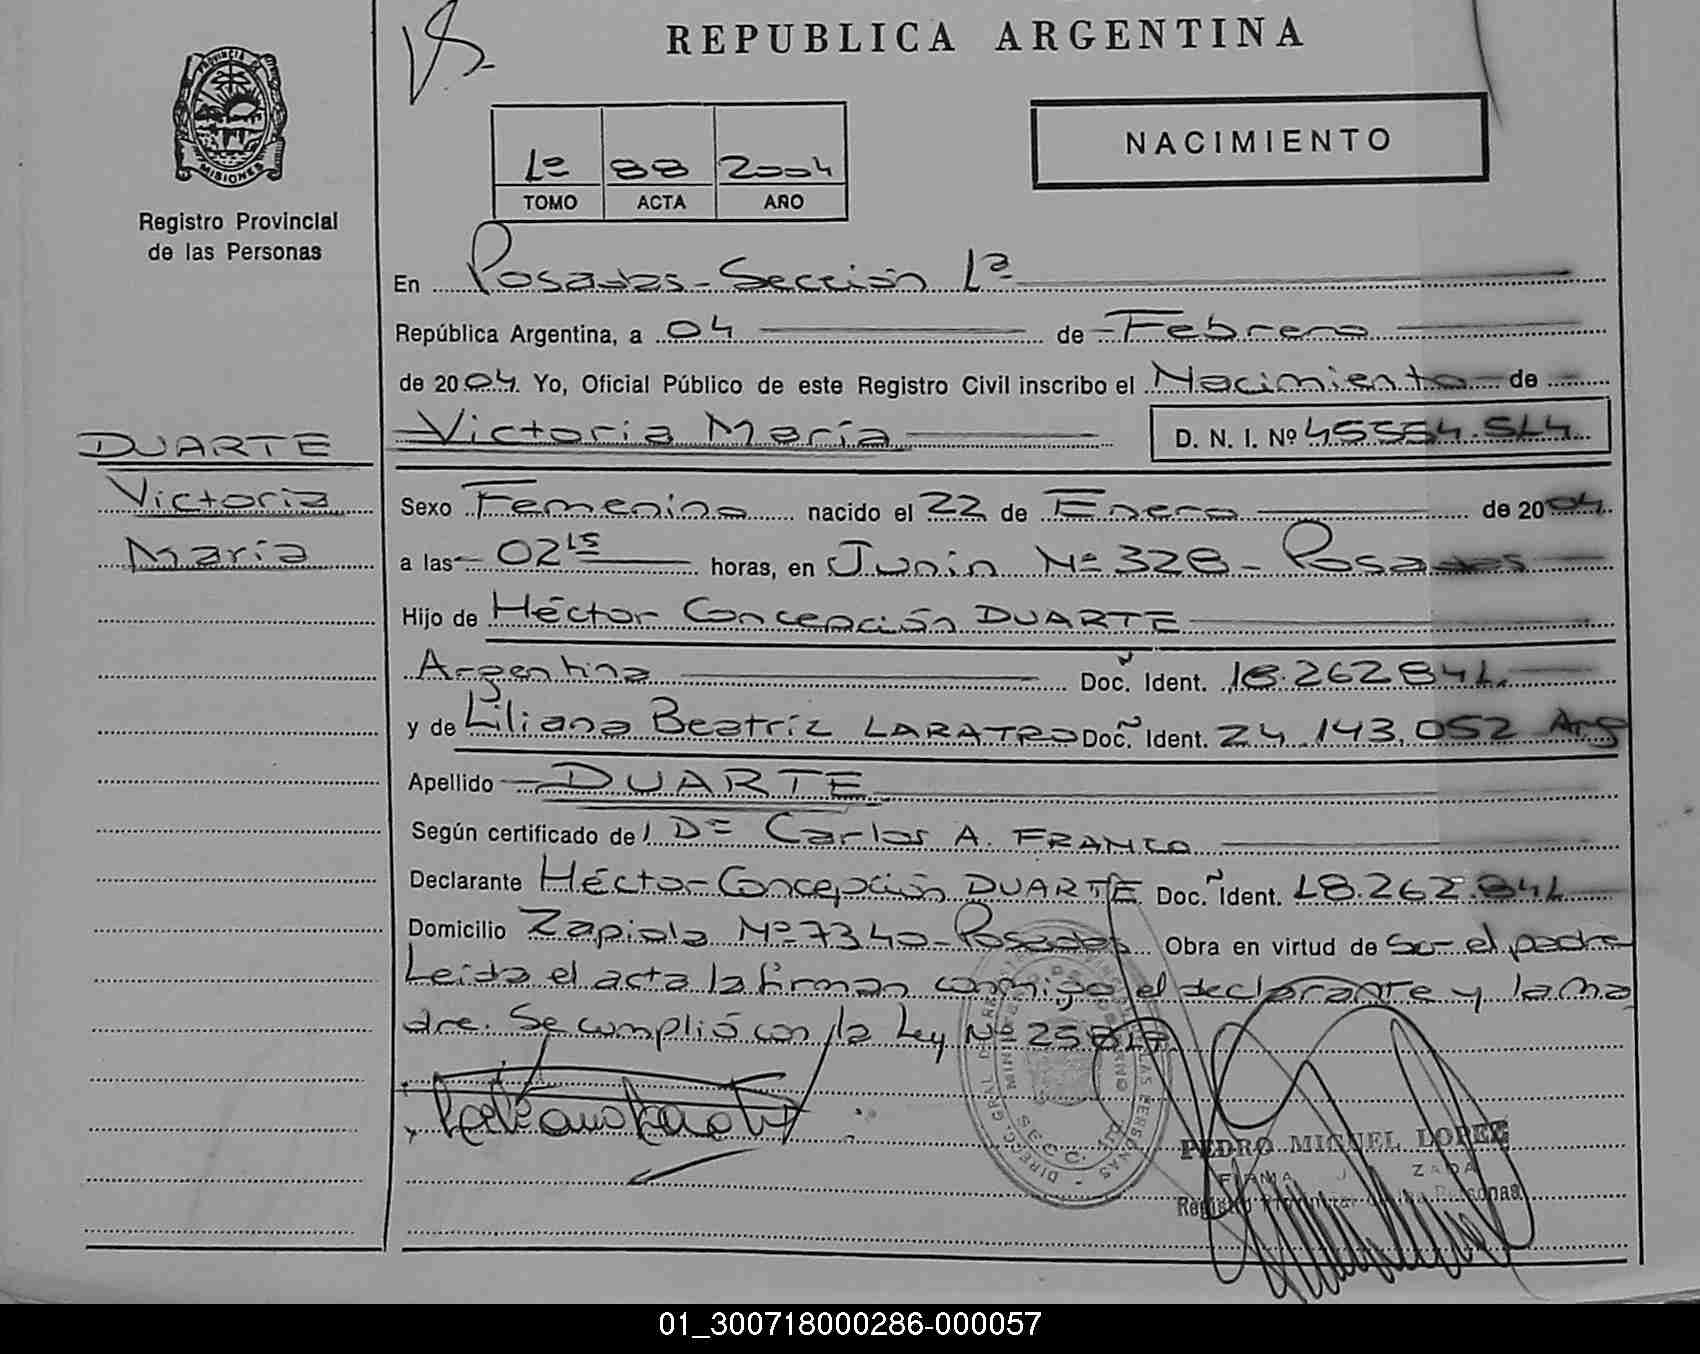 REPUBLICA ARGENTINA
PROVINCIA DE
MISIONES
Registro Provincial
de las Personas
NACIMIENTO
1º 88 2004
TOMO ACTA AÑO
En Posadas-Sección 1ª
República Argentina, a 04 de Febrero
de 2004. Yo, Oficial Público de este Registro Civil inscribo el Nacimiento de
DUARTE
Victoria María
Victoria María
D. N. I. Nº 45.554.514
Sexo Femenino nacido el 22 de Enero de 2004
a las 02 15 horas, en Junín Nº 328 - Posadas
Hijo de Héctor Concepción DUARTE
Argentina Doc. Ident. 18.262.841
y de Liliana Beatríz LARATRO Doc. Ident. 24.143.052 Arg
Apellido DUARTE
Según certificado de Dr Carlos A. FRANCO
Declarante Héctor Concepción DUARTE Doc. Ident. 18.262.841
Domicilio Zapiola Nº 7340-Posadas Obra en virtud de Ser el padre
Leída el acta la firman conmigo el declarante y la ma
dre. Se cumplió con la Ley Nº 25819
SECC. 1ª
PEDRO MIGUEL LOPEZ
Registro Provincial de las Personas
01_300718000286-000057